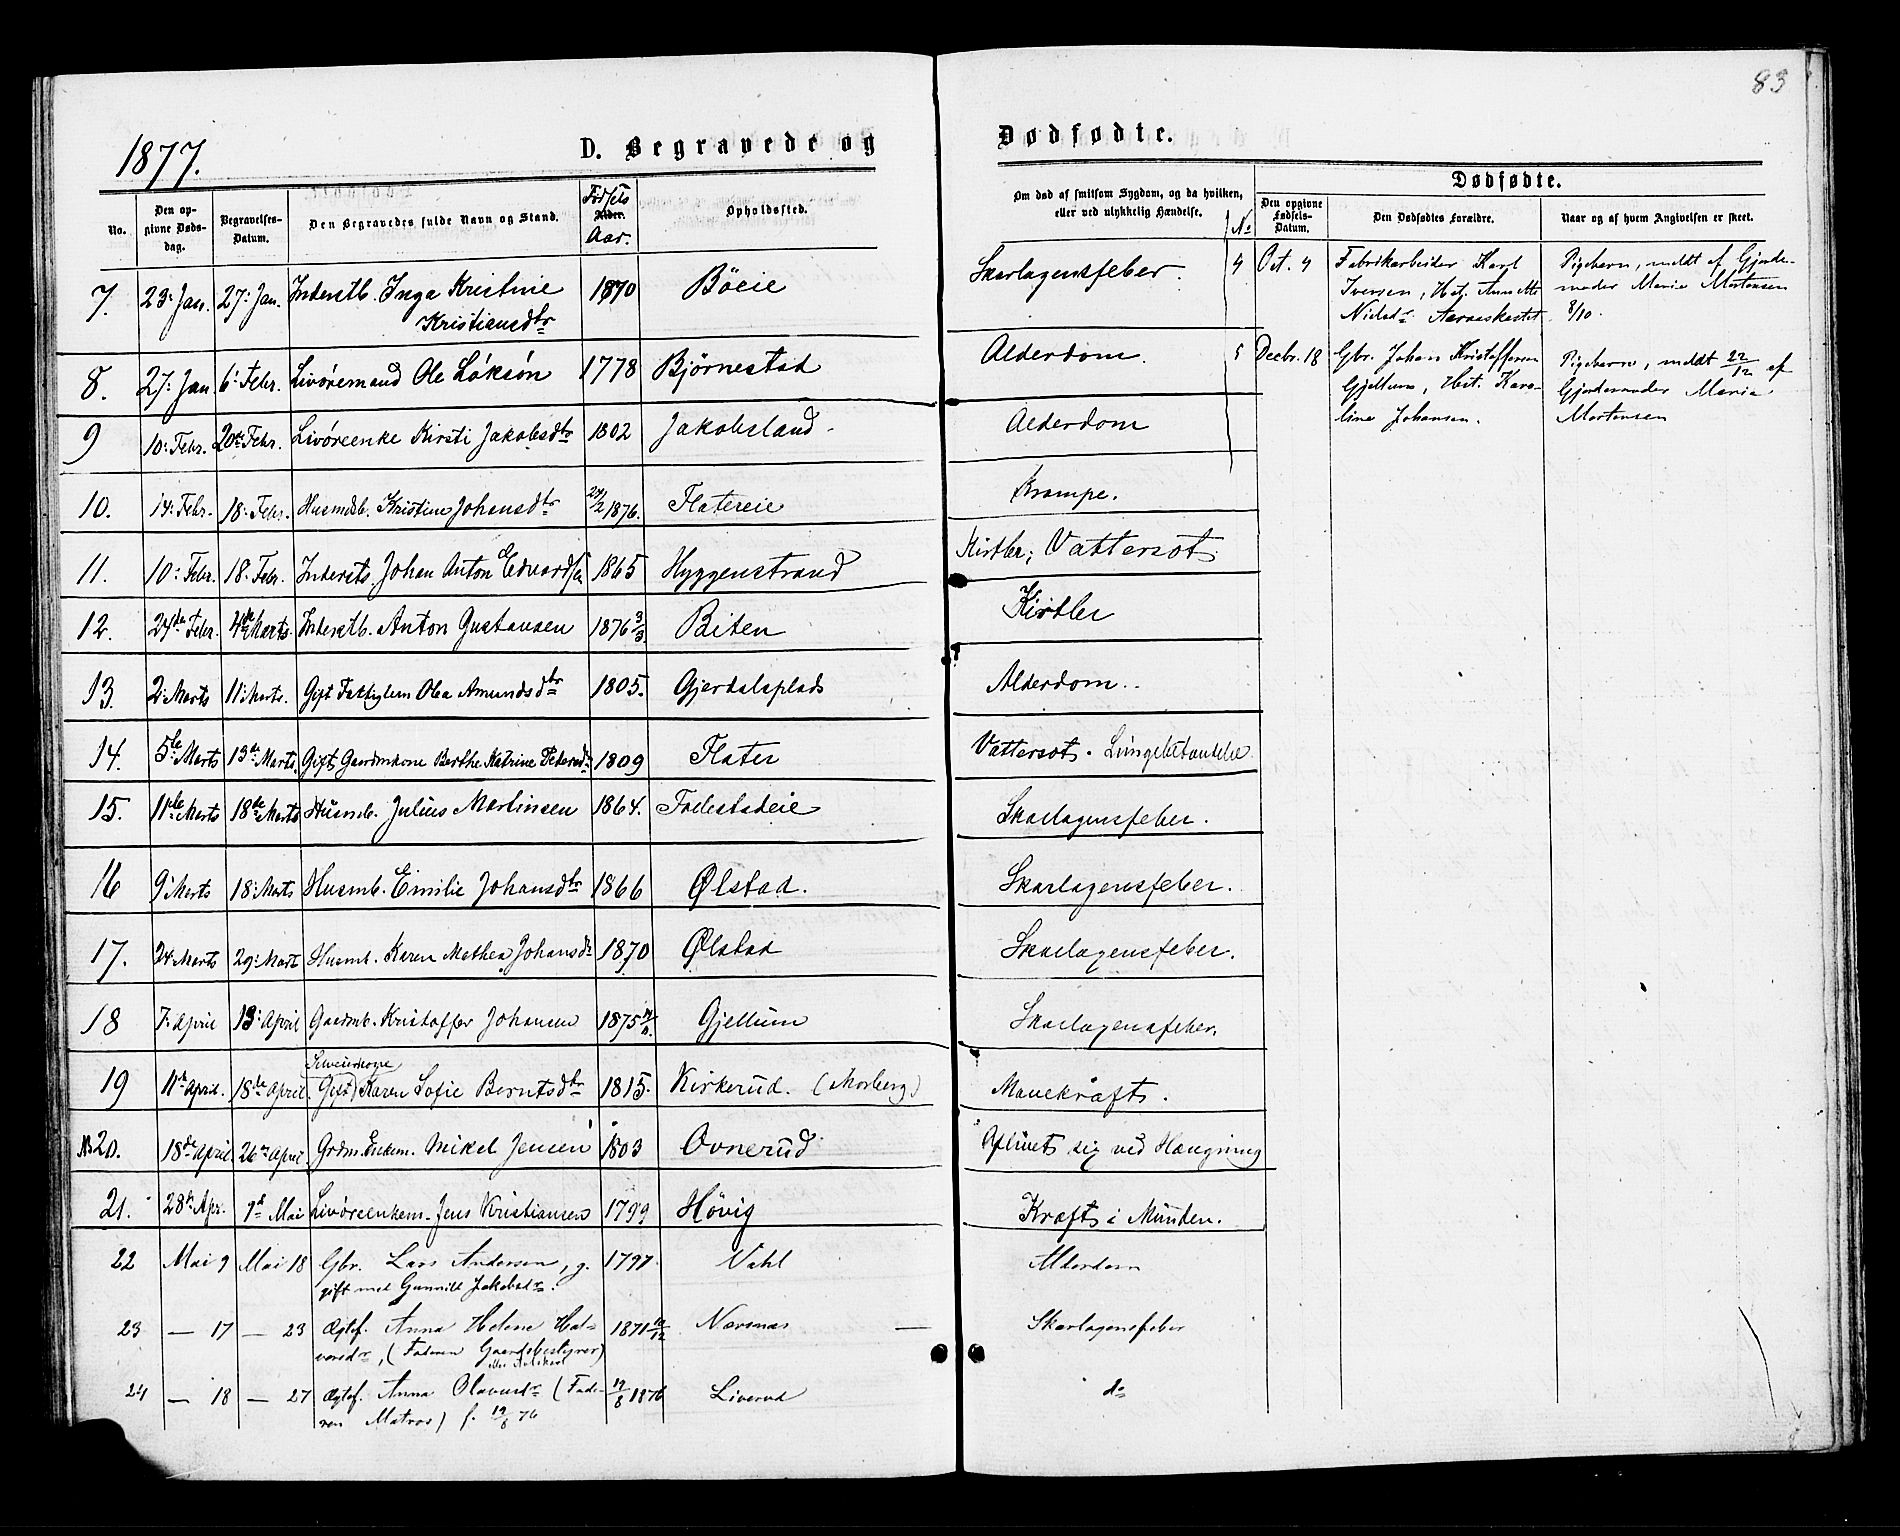 83
1877.
D. Begravede og Dødfødte.
No. Den opgivne Dødsdag. Begravelses-Datum. Den Begravedes fulde Navn og Stand. Fødsels Alder. Aar. Opholdssted. Om død af smitsom Sygdom, og da hvilken, eller ved ulykkelig Hændelse.
Dødfødte.
No Den opgivne Fødsels-Datum. Den Dødfødtes Forældre. Naar og af hvem Angivelsen er skeet.
7. 23: Jan. 27: Jan. Inderstb. Inga Kristine Kristiansdtr 1870 Böeie Skarlagensfeber.
8. 27: Jan 6: Febr. Livöremand Ole Löksön 1778 Björnestad Alderdom.
9 10: Febr. 20de Febr. Livöreenke Kirsti Jakobsdtr 1802 Jakobsland Alderdom
10. 14: Febr. 18: Febr. Husmdsb. Kristine Johansdtr 24/2 1876. Flatereie Krampe.
11. 10: Febr. 18: Febr. Intersts. Johan Anton Edvardsen 1865 Hyggenstrand Kirtler; Vattersot.
12. 24de Febr. 4de Marts. Inderstb. Anton Gustavsen 1876 3/3 Biten Kirtler
13. 2: Marts 11: Marts. Gift Fattiglem Olea Amundsdtr 1805. Gjerdalsplads Alderdom..
14. 5te Marts 13de Marts. Gift Gaardmkone Berthe Katrine Pedersdr 1809 Flater Vattersot. Lungebetændelse.
15. 11te Marts 18de Marts Husmb. Julius Martinsen 1864. Foelstadeie Skarlagensfeber.
16 9: Marts 18: Marts Husmb. Emilie Johansdtr 1866 Ølstad. Skarlagensfeber.
17. 24 Marts 29: Mart Husmb. Karen Mathea Johansdr 1870 Ølstad Skarlagensfeber.
18 7: April 13: April Gaardmb. Kristoffer Johansen 1875 Gjellum Skarlagensfeber.
19 11te April. 18de April. Gift Karen Sofie Berntsdtr 1815. Kirkerud. (Morberg) Mavekræft.
No 20. 18de April. 26de April Grdm. Enkem. Mikel Jensen 1803 Ovnerud Aflivet sig ved Hængning
21. 28de Apr. 7de Mai Livöreenkem. Jens Kristiansen 1799 Hövig Kræft i Munden.
22 Mai 9 Mai 18 Gbr. Lars Andersen, g. gift med Gunnild Jakobsdr. 1797. Vahl Alderdom
23 — 17 — 23 Ægtef. Anna Helene Halvorsdr, (Faderen Gaardsbestyrer) 1871 Nærsnæs — Skarlagensfeber
24 — 18 — 27 Ægtef. Anna Olavusdr (Faderen Matros) f. 19/8 76 19/8 1876 Liverud do
4 Oct. 4 Fabrikarbeider Karl Iversen, Hst. Annette Nielsdr. Pigebarn, meldt af Gjordemoder Maria Mortensen 8/10.
5 Decbr. 18 Gbr. Johan Kristoffersen Gjellum, Hst. Karoline Johansen. Pigebarn, meldt 22/12 af Gjordemoder Maria Mortensen